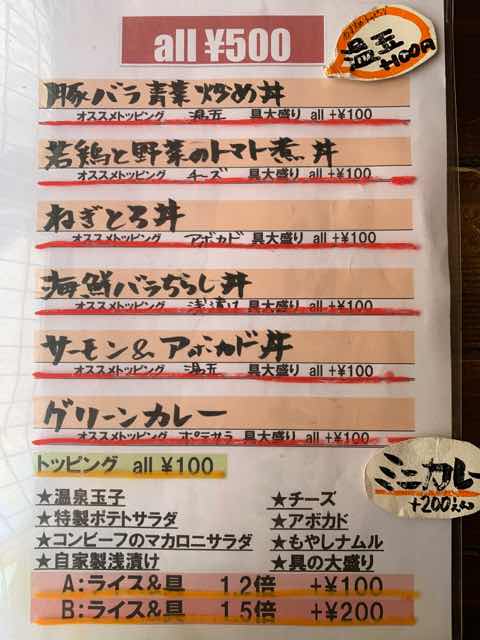 all ¥500
温玉
+100円
豚バラ青菜炒め丼
オススメトッピング 温玉 具大盛り all +¥100
若鶏と野菜のトマト煮丼
オススメトッピング チーズ 具大盛り all +¥100
ねぎとろ丼
オススメトッピング アボカド 具大盛り all +¥100
海鮮バラちらし丼
オススメトッピング 浅漬け 具大盛り all +¥100
サーモン&アボカド丼
オススメトッピング 温玉 具大盛り all +¥100
グリーンカレー
オススメトッピング ポテサラ 具大盛り all +¥100
トッピング all ¥100
ミニカレー
+200えん
★温泉玉子 ★チーズ
★特製ポテトサラダ ★アボカド
★コンビーフのマカロニサラダ ★もやしナムル
★自家製浅漬け ★具の大盛り
A:ライス&具 1.2倍 +¥100
B:ライス&具 1.5倍 +¥200